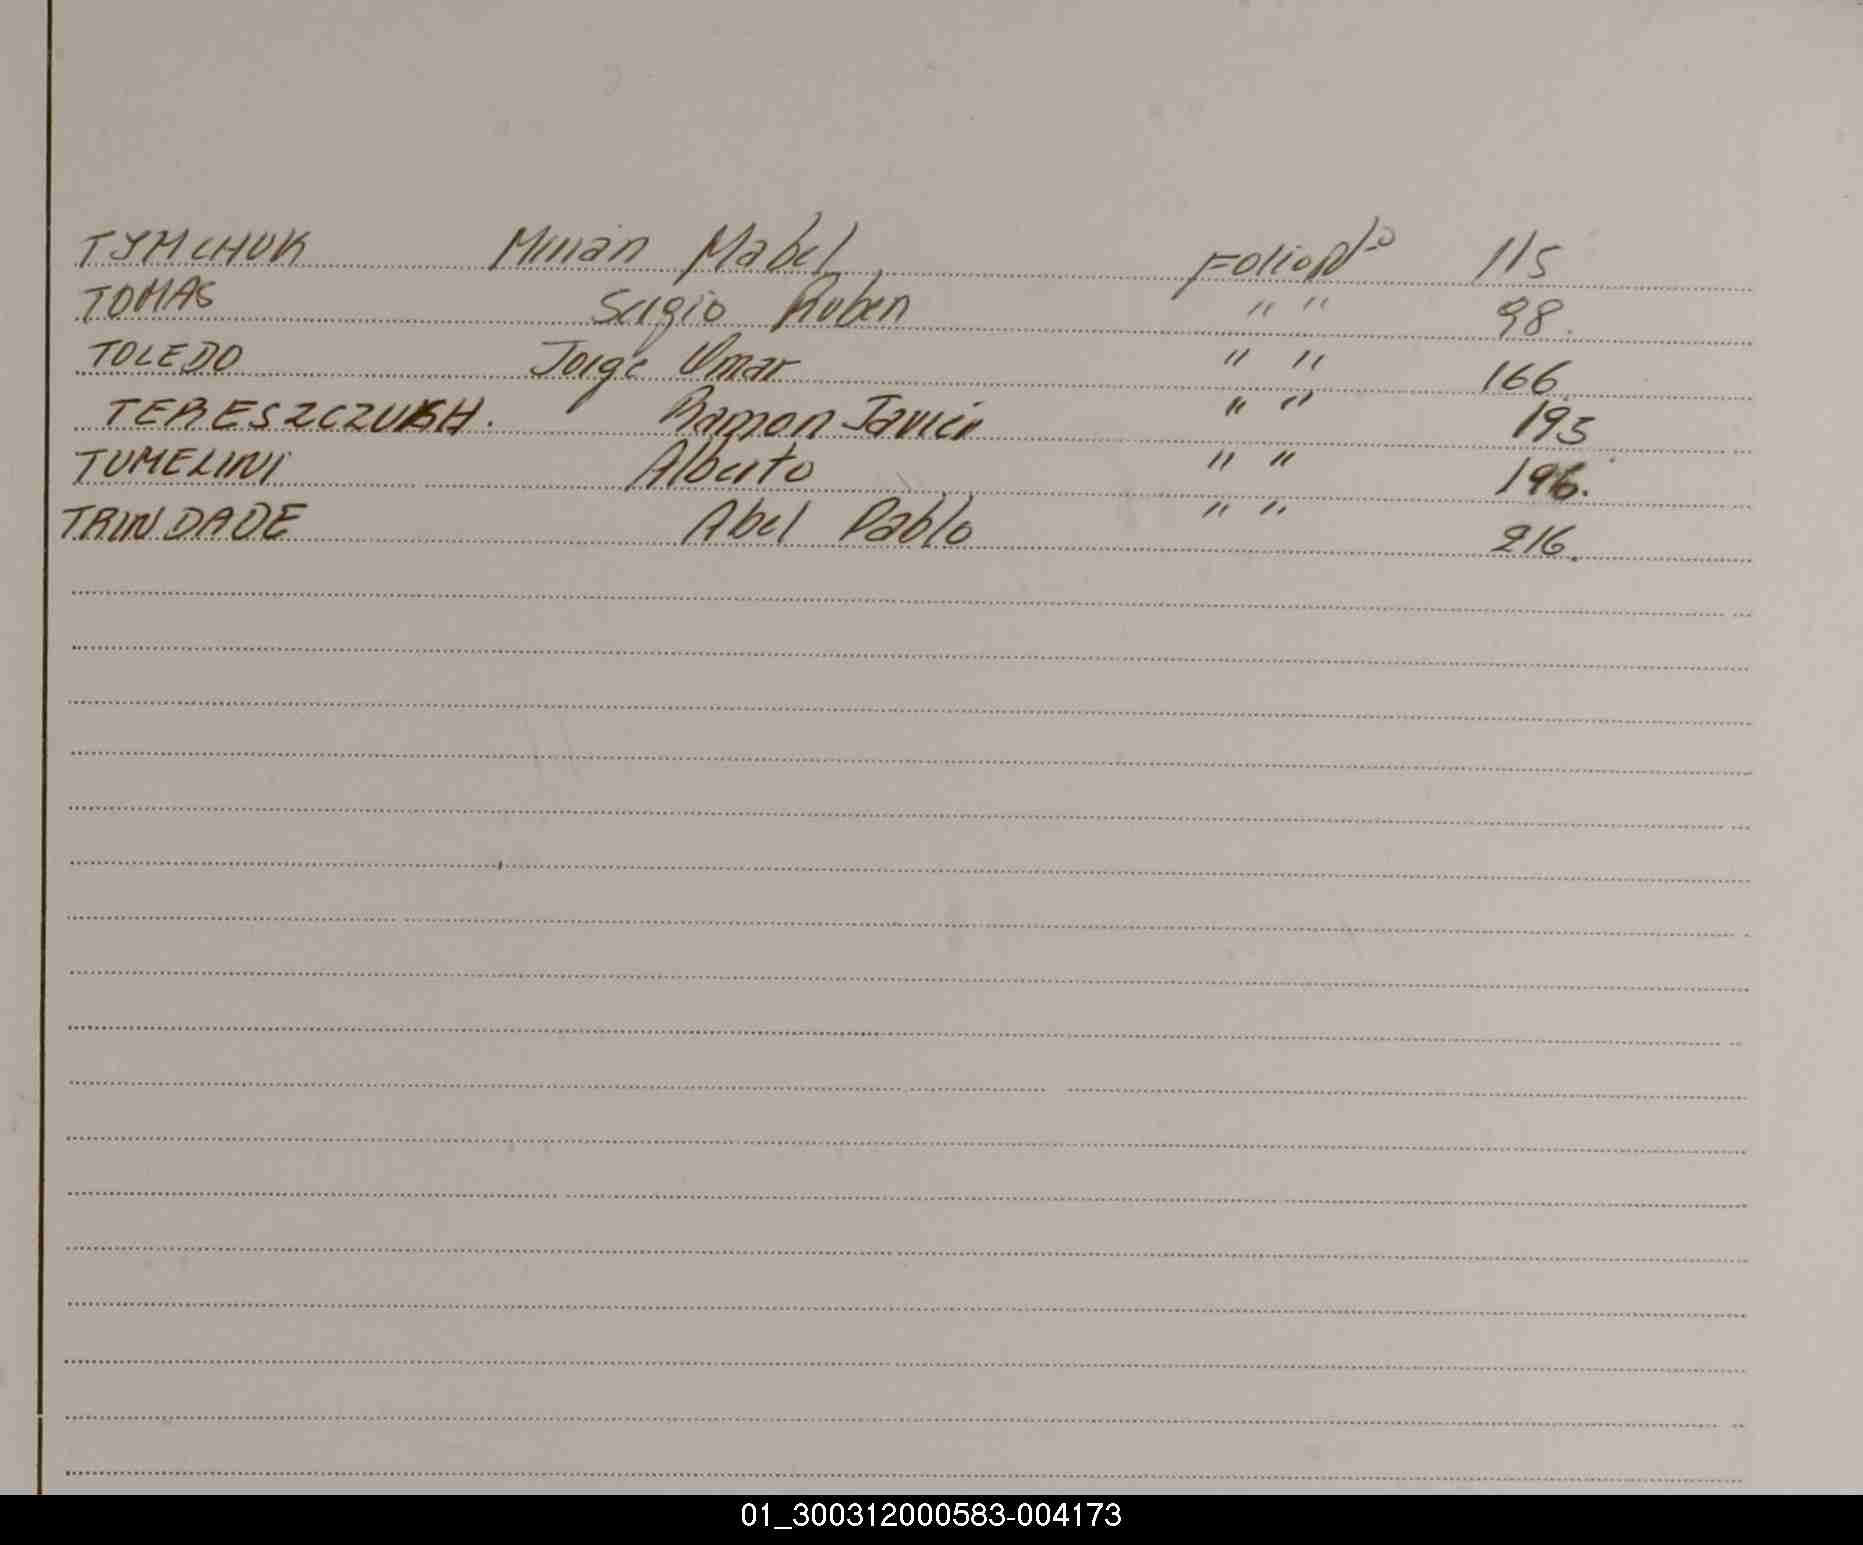 TYMCHUK Mirian Mabel Folio Nº 115
TOMAS Sergio Ruben " " 98.
TOLEDO Jorge Omar " " 166.
TERESZCZUKH. Ramon Javier " " 195
TUMELINI Alberto " " 196.
TRINDADE Abel Pablo " " 216.
01_300312000583-004173